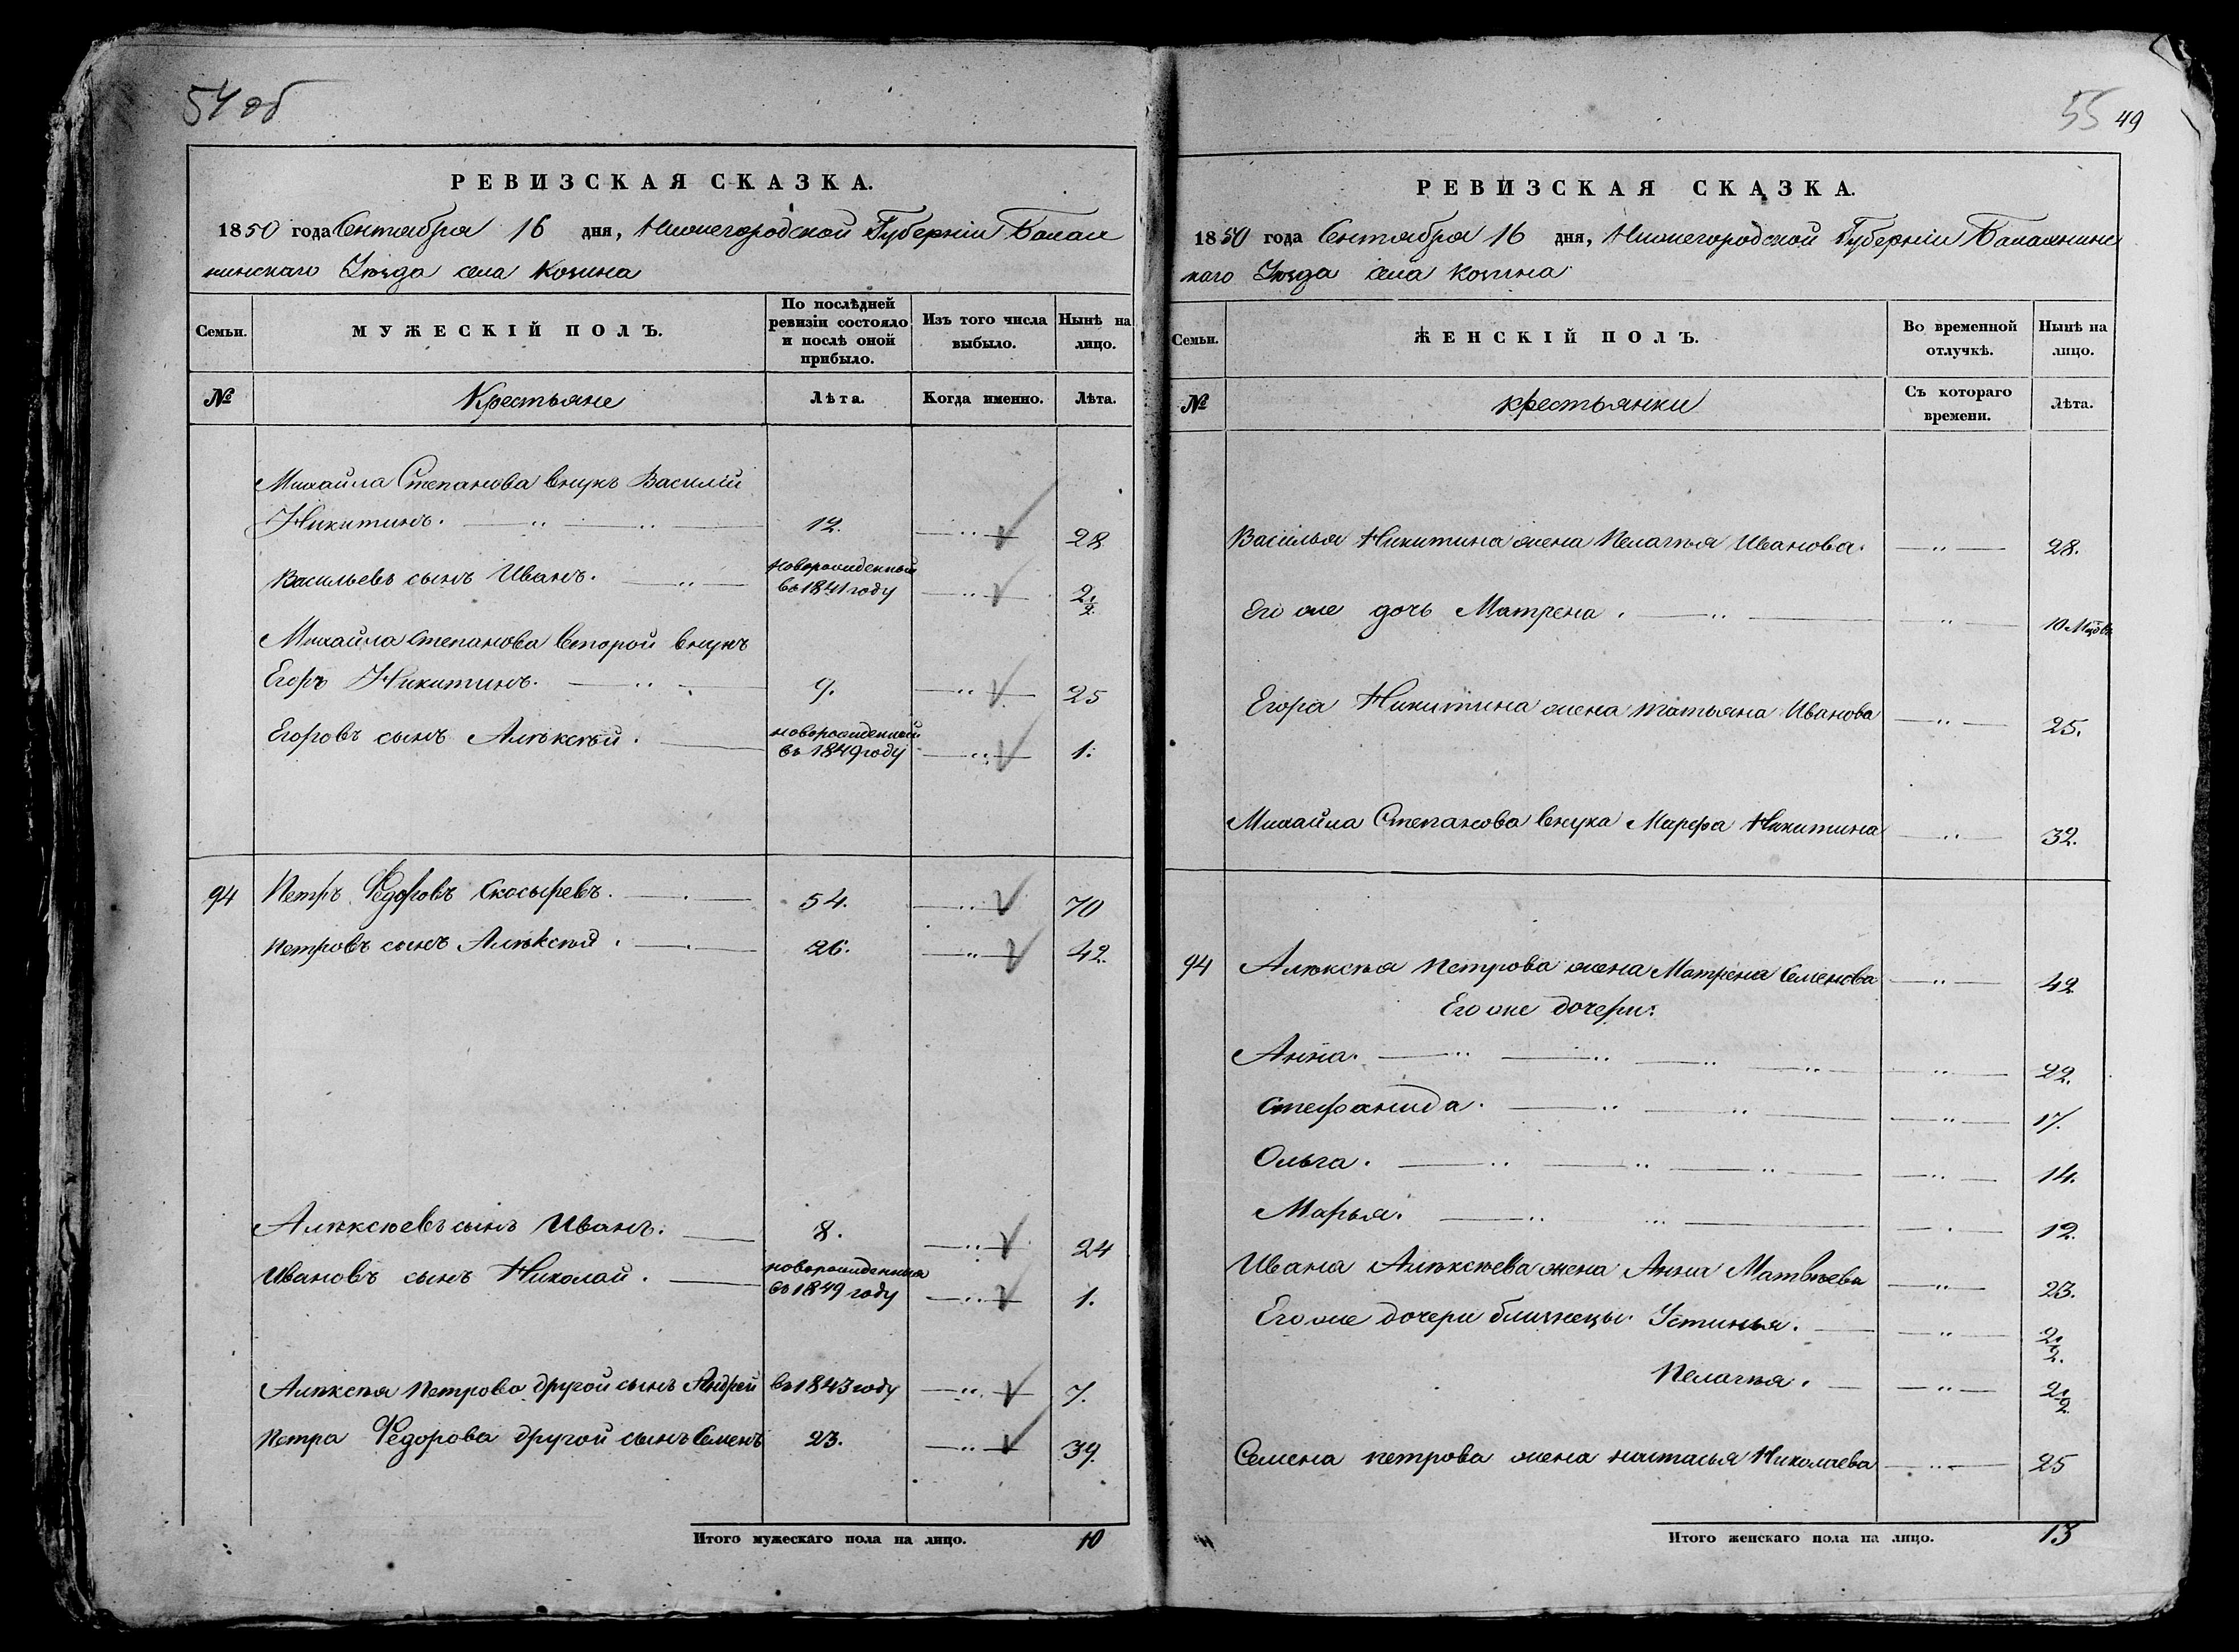 54 об
РЕВИЗСКАЯ СКАЗКА.
1850 года Сентября 16 дня, Нижегородской Губерніи Балах
нинскаго Уѣзда села Козина
Семьи.
МУЖЕСКІЙ ПОЛЪ.
По послѣдней ревизіи состояло и послѣ оной прибыло.
Изъ того числа выбыло.
Нынѣ на лицо.
№ Крестьяне Лѣта. Когда именно. Лѣта.
Михайла Степанова внукъ Василій
Никитинъ. 12. 28
Васильевъ сынъ Иванъ. новорожденный въ 1841 году 2 1/2
Михайла Степанова второй внукъ
Егоръ Никитинъ. 9. 25
Егоровъ сынъ Алѣксѣй. новорожденный въ 1849 году 1.
94 Петръ Федоровъ Скосыревъ. 54. 70
Петровъ сынъ Алѣксѣй. 26. 42.
Алѣксѣевъ сынъ Иванъ. 8. 24
Ивановъ сынъ Николай. новорожденный въ 1849 году 1.
Алѣксѣя Петрова другой сынъ Андрей въ 1843 году 7.
Петра Федорова другой сынъ Семенъ 23. 39.
Итого мужескаго пола на лицо. 10
55 49
РЕВИЗСКАЯ СКАЗКА.
1850 года Сентября 16 дня, Нижегородской Губерніи Балахнинс
каго Уѣзда села Козина
Семьи.
ЖЕНСКІЙ ПОЛЪ.
Во временной отлучкѣ.
Нынѣ на лицо.
№ крестьянки Съ котораго времени. Лѣта.
Василья Никитина жена Пелагѣя Иванова. 28.
Его же дочь Матрена. 10 Мцовъ
Егора Никитина жена татьяна Иванова 25.
Михайла Степанова внука Марфа Никитина 32.
94 Алѣксѣя Петрова жена Матрена Семенова 42
Его же дочери:
Анна. 22.
Стефанида. 17.
Ольга. 14.
Марья. 12.
Ивана Алѣксѣева жена Анна Матвѣева 23.
Его же дочери близнецы Устинья. 2 1/2.
Пелагѣя. 2 1/2
Семена петрова жена настасья Николаева 25
Итого женскаго пола на лицо. 13